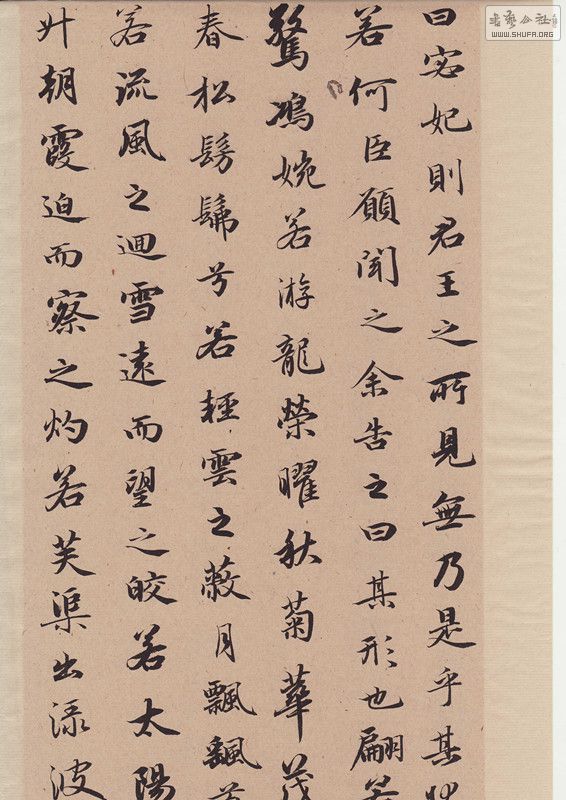 曰宓妃則君王之所見無乃是乎其
若何臣願聞之余告之曰其形也翩若
驚鴻婉若游龍榮曜秋菊華茂
春松髣髴兮若輕雲之蔽月飄颻兮
若流風之迴雪遠而望之皎若太陽
升朝霞迫而察之灼若芙渠出淥波
书艺公社
WWW.SHUFA.ORG